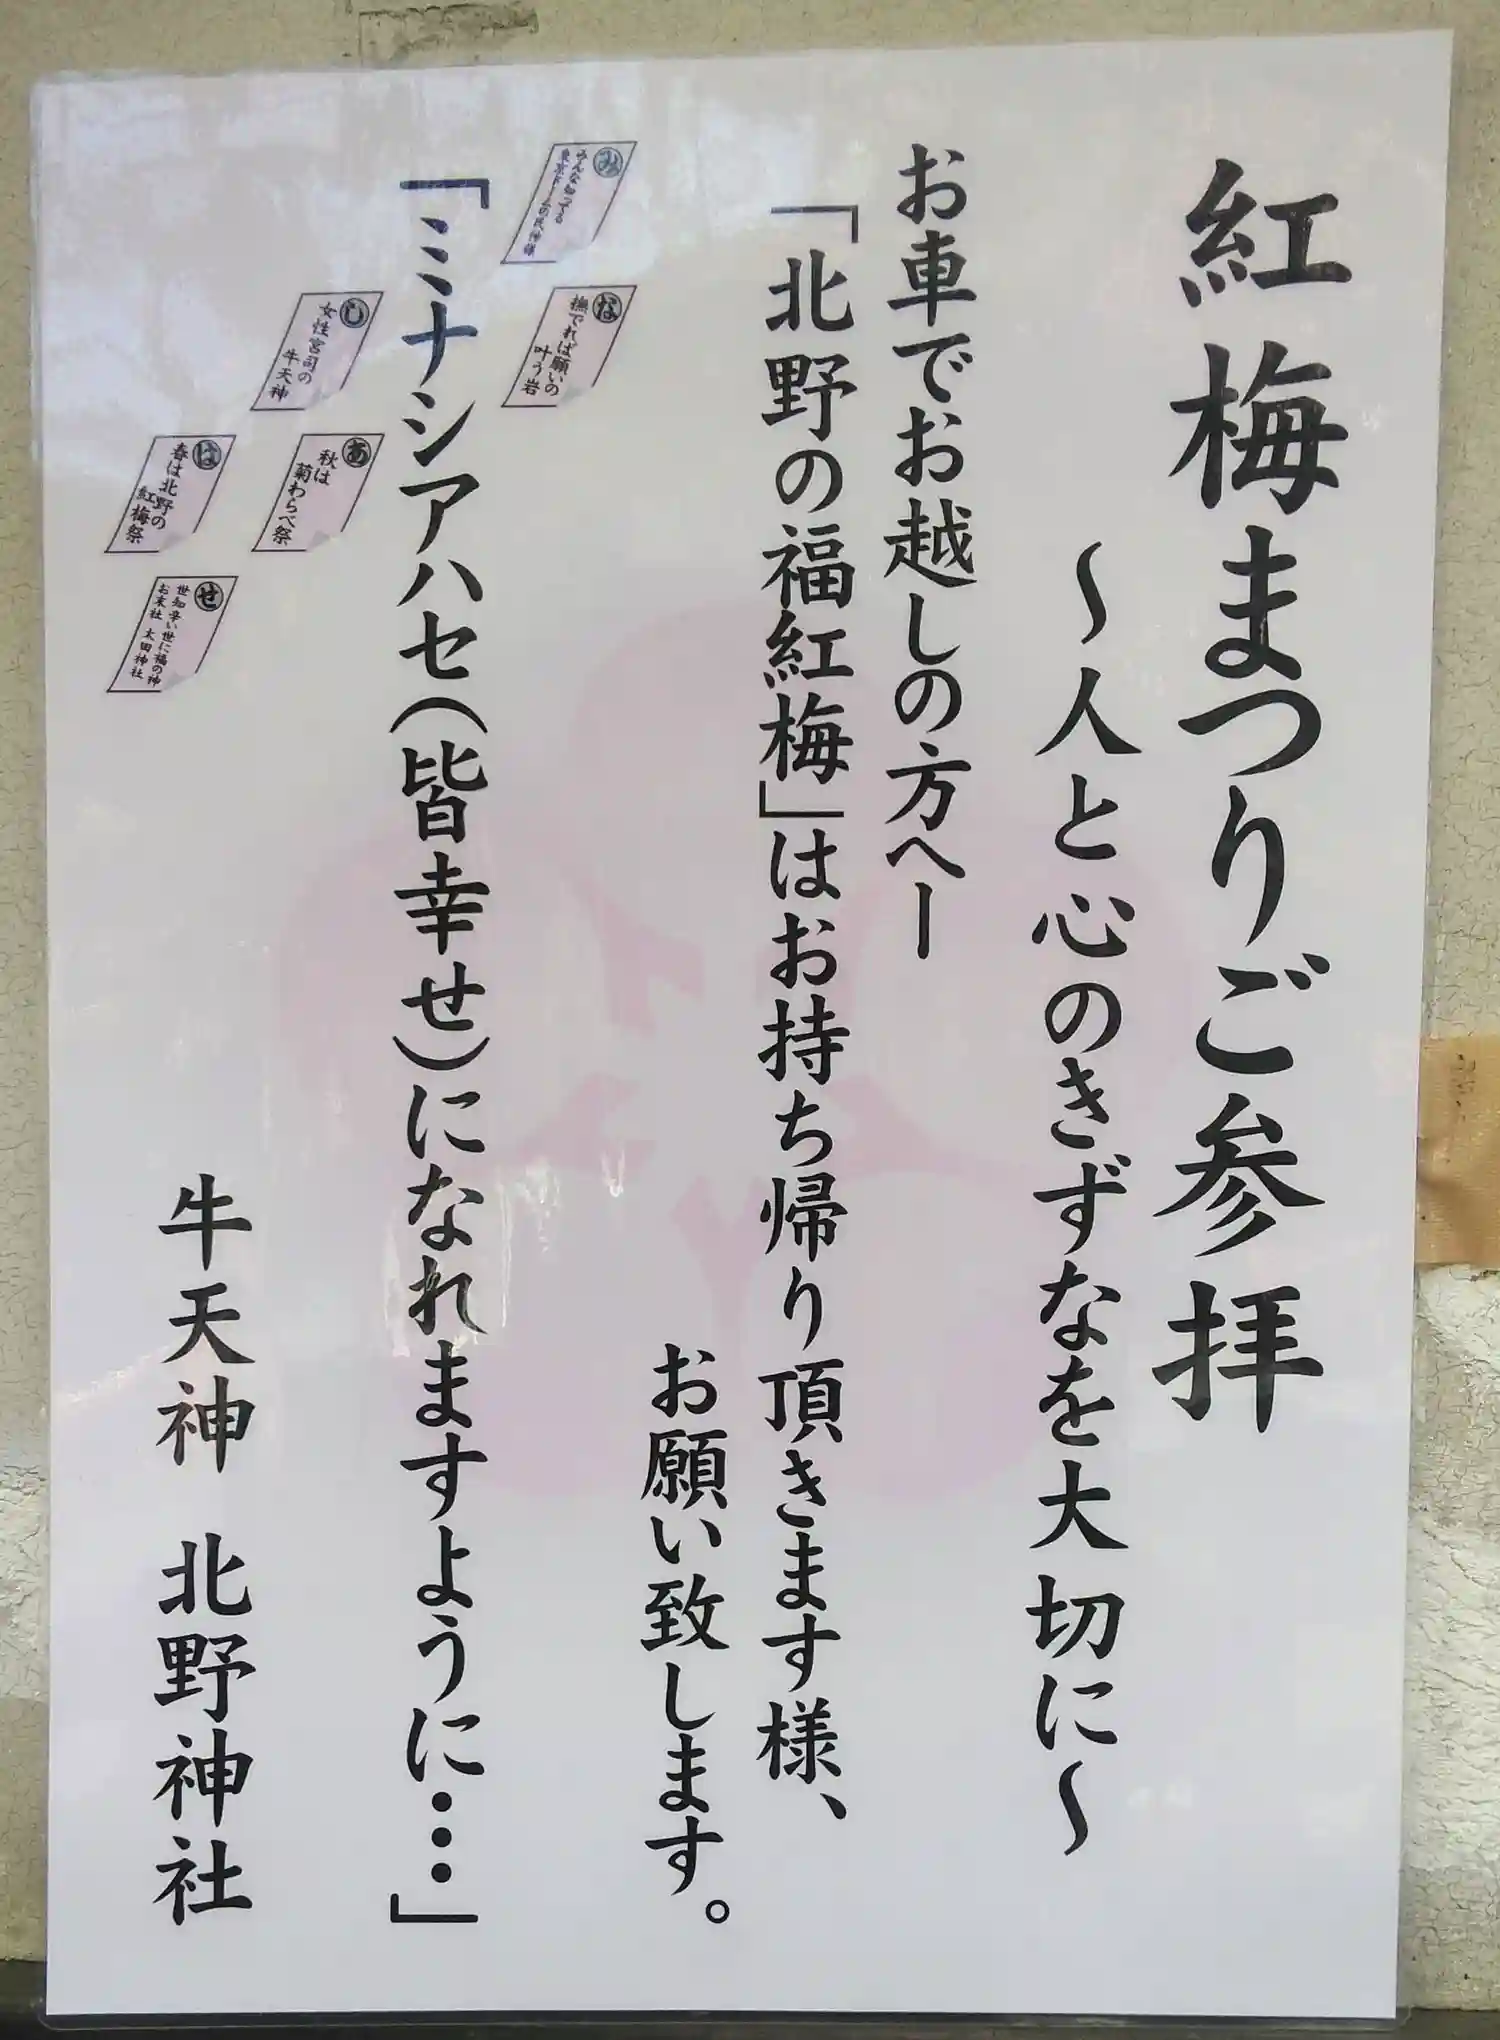 紅梅まつりご参拝
～人と心のきずなを大切に～
お車でお越しの方へー
「北野の福紅梅」はお持ち帰り頂きます様、
お願い致します。
み
みんな知ってる
東京ドームの氏神様
な
撫でれば願いの
叶う岩
「ミナシアハセ(皆幸せ)になれますように…」
し
女性宮司の
牛天神
あ
秋は
菊わらべ祭
は
春は北野の
紅梅祭
せ
世知辛い世に福の神
お末社 太田神社
牛天神 北野神社